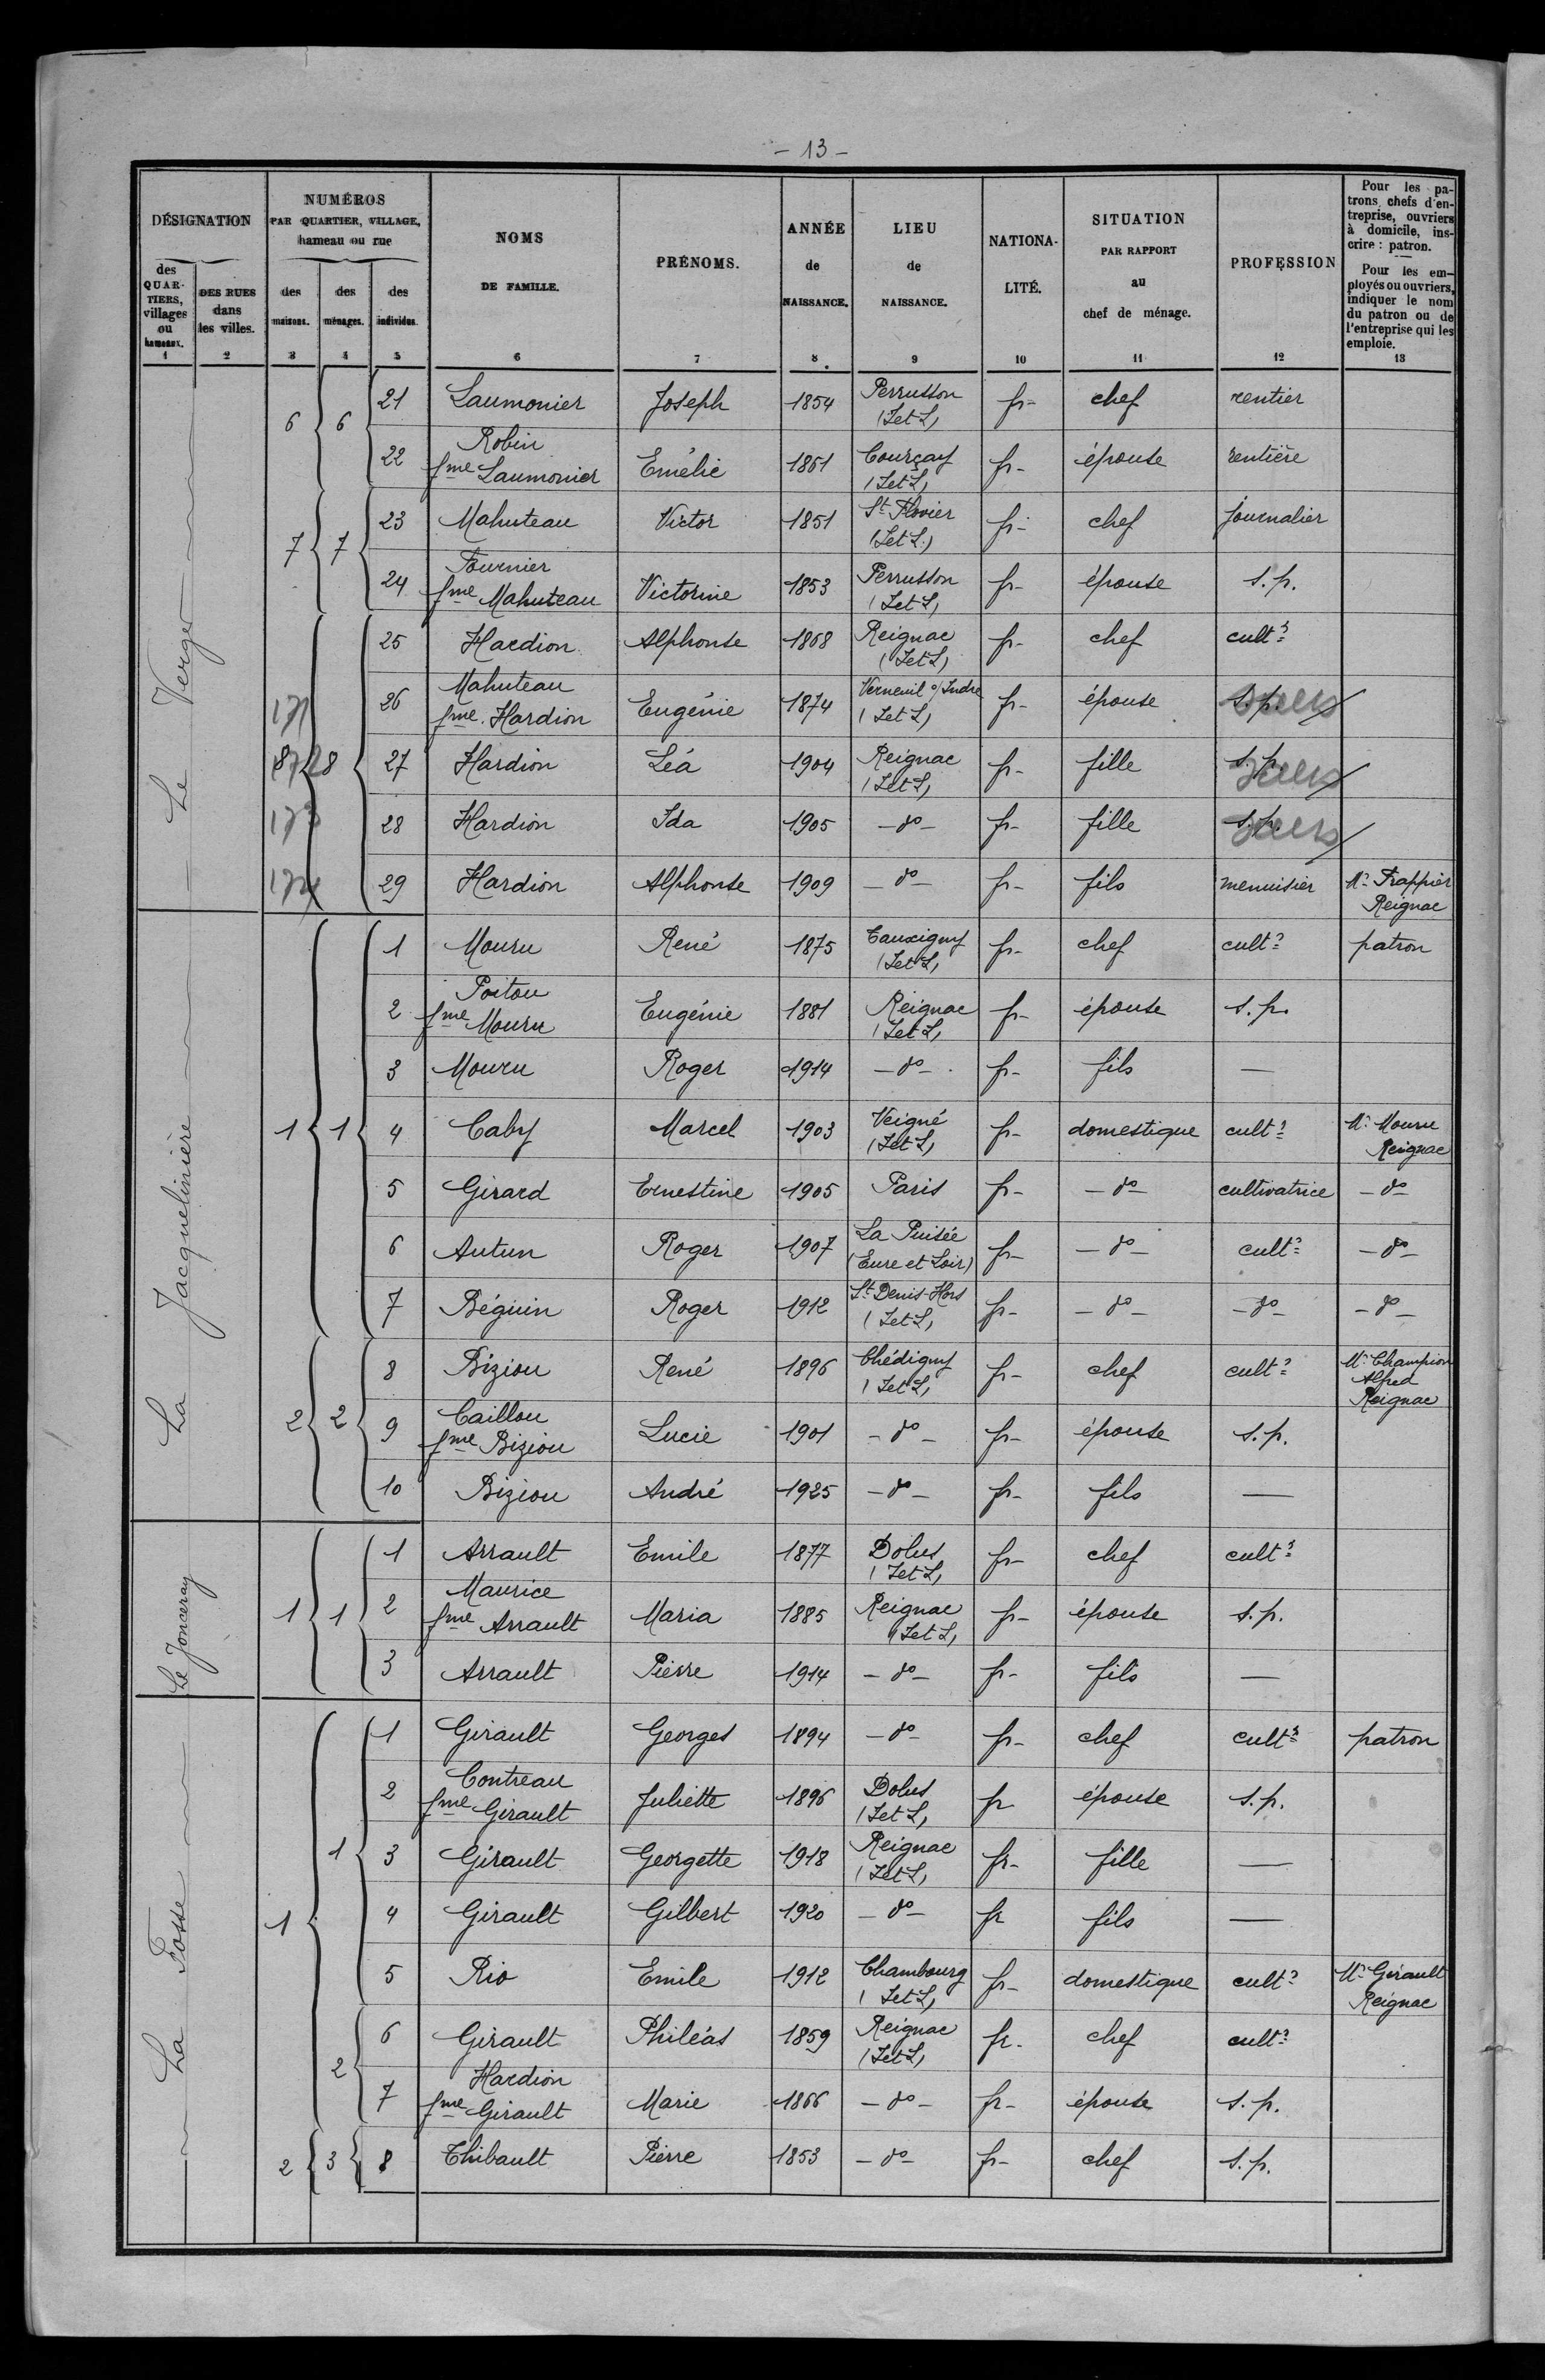 - 13 -
DÉSIGNATION
des QUARTIERS, villages ou hameaux. 1
DES RUES dans les villes. 2
NUMÉROS PAR QUARTIER, VILLAGE, hameau ou rue
des maisons. 3
des ménages. 4
des individus. 5
NOMS DE FAMILLE. 6
PRÉNOMS. 7
ANNÉE de NAISSANCE. 8
LIEU de NAISSANCE. 9
NATIONALITÉ. 10
SITUATION PAR RAPPORT au chef de ménage. 11
PROFESSION 12
Pour les patrons, chefs d'entreprise, ouvriers à domicile, inscrire : patron.
Pour les employés ou ouvriers, indiquer le nom du patron ou de l'entreprise qui les emploie. 13
Le Verger
6 6 21 Laumonier Joseph 1854 Perrusson (I et L) fr- chef rentier
22 Robin fme Laumonier Emélie 1861 Courçay (I et L) fr- épouse rentière
7 7 23 Mahuteau Victor 1851 St Flovier (I et L) fr- chef journalier
24 Fournier fme Mahuteau Victorine 1853 Perrusson (I et L) fr- épouse s.p.
8 25 Hardion Alphonse 1868 Reignac (I et L) fr- chef cultr
171 26 Mahuteau fme Hardion Eugénie 1874 Verneuil s/ Indre (I et L) fr- épouse s.p.
27 Hardion Léa 1904 Reignac (I et L) fr- fille s.p.
173 28 Hardion Ida 1905 -do- fr- fille s.p.
174 29 Hardion Alphonse 1909 -do- fr- fils menuisier Mr Frappier Reignac
La Jacquelinière
1 1 1 Mouru René 1875 Tauxigny (I et L) fr- chef cultr patron
2 Poitou fme Mouru Eugénie 1881 Reignac (I et L) fr- épouse s.p.
3 Mouru Roger 1914 -do- fr- fils —
4 Caby Marcel 1903 Veigné (I et L) fr- domestique cultr Mr Mouru Reignac
5 Girard Ernestine 1905 Paris fr- -do- cultivatrice -do-
6 Autun Roger 1907 La Puisée (Eure et Loir) fr- -do- cultr -do-
7 Béguin Roger 1912 St Denis-Hors (I et L) fr- -do- -do- -do-
2 2 8 Biziou René 1896 Chédigny (I et L) fr- chef cultr Mr Champion Alfred Reignac
9 Caillou fme Biziou Lucie 1901 -do- fr- épouse s.p.
10 Biziou André 1925 -do- fr- fils —
Le Jonceray
1 1 1 Arrault Emile 1877 Dolus (I et L) fr- chef cultr
2 Maurice fme Arrault Maria 1885 Reignac (I et L) fr- épouse s.p.
3 Arrault Pierre 1914 -do- fr- fils —
La Fosse
1 1 1 Girault Georges 1894 -do- fr- chef cultr patron
2 Contreau fme Girault Juliette 1896 Dolus (I et L) fr épouse s.p.
3 Girault Georgette 1918 Reignac (I et L) fr- fille —
4 Girault Gilbert 1920 -do- fr fils —
5 Rio Emile 1912 Chambourg (I et L) fr- domestique cultr Mr Girault Reignac
2 6 Girault Philéas 1859 Reignac (I et L) fr. chef cultr
7 Hardion fme Girault Marie 1866 -do- fr- épouse s.p.
2 3 8 Thibault Pierre 1853 -do- fr- chef s.p.